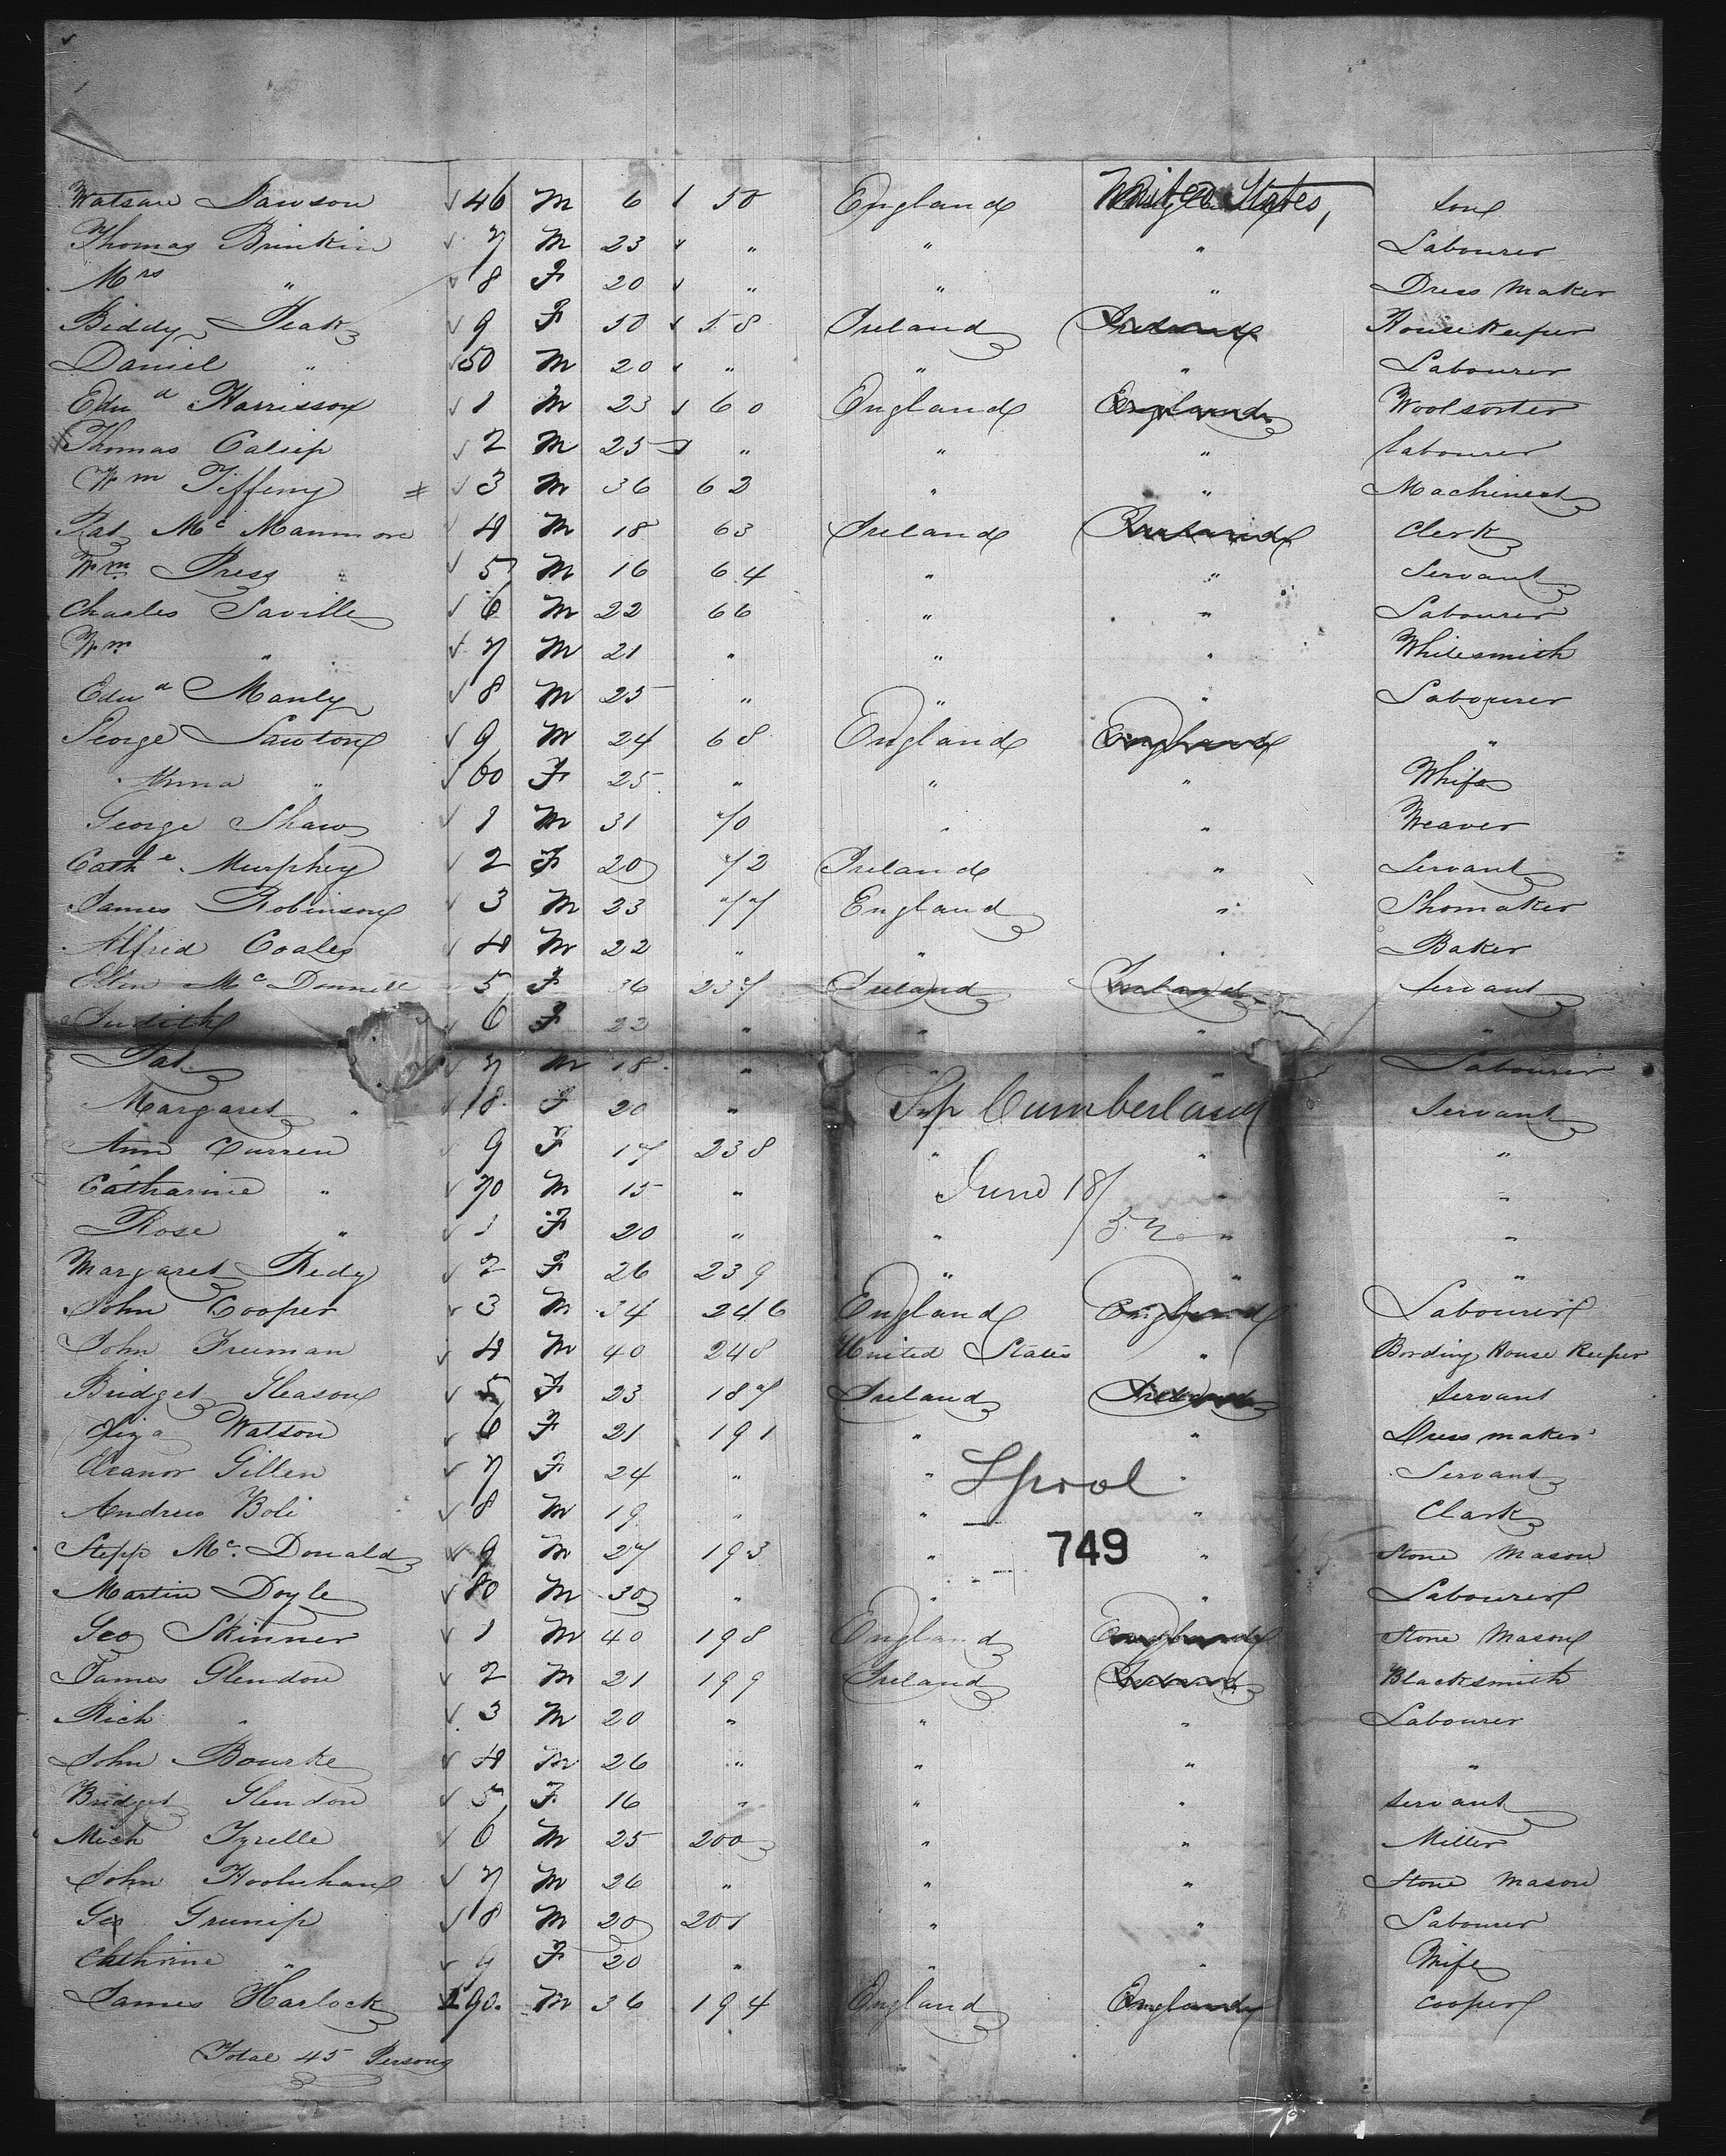 Watson Dawson 46 M 6 1 50 England United States, Son
Thomas Brinkin 7 M 23 " " " Labourer
Mrs " 8 F 20 " " " Dress Maker
Biddy Peak 9 F 50 58 Ireland Ireland Housekeeper
Daniel " 50 M 20 " " " Labourer
Edwd Harrisson 1 M 23 60 England England Woolsorter
Thomas Calsip 2 M 25 " " " labourer
Wm Tiffeny 3 M 36 62 " " Machineest
Pat Mc Manmore 4 M 18 63 Ireland Ireland Clerk
Wm Press 5 M 16 64 " " Servant
Charles Saville 6 M 22 66 " " Labourer
Wm " 7 M 21 " " " Whitesmith
Edwd Manly 8 M 25 " " " Labourer
George Lawton 9 M 24 68 England England "
Anna " 60 F 25 " " " Whife
George Shaw 1 M 31 70 " " Weaver
Cathe Murphey 2 F 20 72 Ireland " Servant
James Robinson 3 M 23 77 England " Shomaker
Alfrid Coales 4 M 22 " " " Baker
Ellen Mc Donnell 5 F 36 237 Ireland Ireland Servant
Judith 6 F 22 " " " "
Pat 7 M 18 " Labourer
Margaret " 8 F 20 " Sp Cumberland Servant
Ann Curren 9 F 17 238 " " "
Catharine " 70 M 15 " " June 18/ "
Rose " 1 F 20 " " 52 " "
Margaret Redy 2 F 26 239 " " "
John Cooper 3 M 34 246 England England Labourer
John Freeman 4 M 40 248 United States " Bording House Keeper
Bridget Gleason 5 F 23 187 Ireland Ireland Servant
Eliza Watson 6 F 21 191 " " Dress maker
Eleanor Gillen 7 F 24 " " Lpool " Servant
Andrew Boli 8 M 19 " " " Clark
Stepp Mc Donald 9 M 27 193 " 749 " Stone Mason
Martin Doyle 80 M 30 " " " Labourer
Geo Skinner 1 M 40 198 England England Stone Mason
James Glendon 2 M 21 199 Ireland Ireland Blacksmith
Rich " 3 M 20 " " " Labourer
John Bourke 4 M 26 " " " "
Bridget Glendon 5 F 16 " " " Servant
Mich Tyrelle 6 M 25 200 " " Miller
John Hooluhan 7 M 26 " " " Stone Mason
Geo Grunip 8 M 20 201 " " Labourer
Chethrine " 9 F 20 " " " Wife
James Harlock 290 M 36 194 England England Cooper
Total 45 Persons